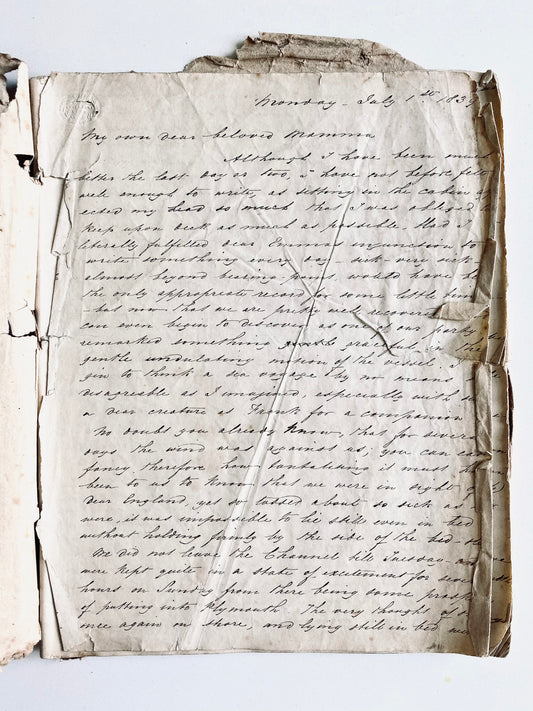 Monday - July 1st 1839
My own dear beloved Mamma
Although I have been much
better the last day or two, I have not before felt
well enough to write, as sitting in the cabin af
ected my head so much that I was obliged to
keep upon deck as much as possible. Had I
literally fulfilled dear Emmas injunction to
write something every day - sick - very sick
almost beyond bearing pains would have be
the only appropriate record for some little time
- but now that we are pretty well recovered
can even begin to discover as one of our party
remarked something graceful in the
gentle undulating motion of the vessel, I
gin to think a sea voyage by no means
disagreeable as I imagined, especially with
a dear creature as Frank for a companion
No doubt you already know, that for severa
days the wind was against us; you can ea
fancy therefore how tantalising it must
been to us to know that we were in sight of
dear England, yet so tossed about so sick as
were, it was impossible to lie still even in bed
without holding firmly by the side of the bed
We did not leave the Channel till Tuesday
were kept quite in a state of excitement for seve
hours on Sunday from there being some prosp
of putting into Plymouth. The very thought of
once again on shore, and lying still in bed, we